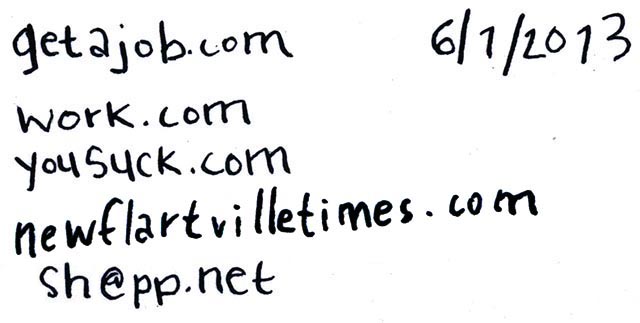 getajob.com 6/1/2013
work.com
yousuck.com
newflartvilletimes.com
sh@pp.net